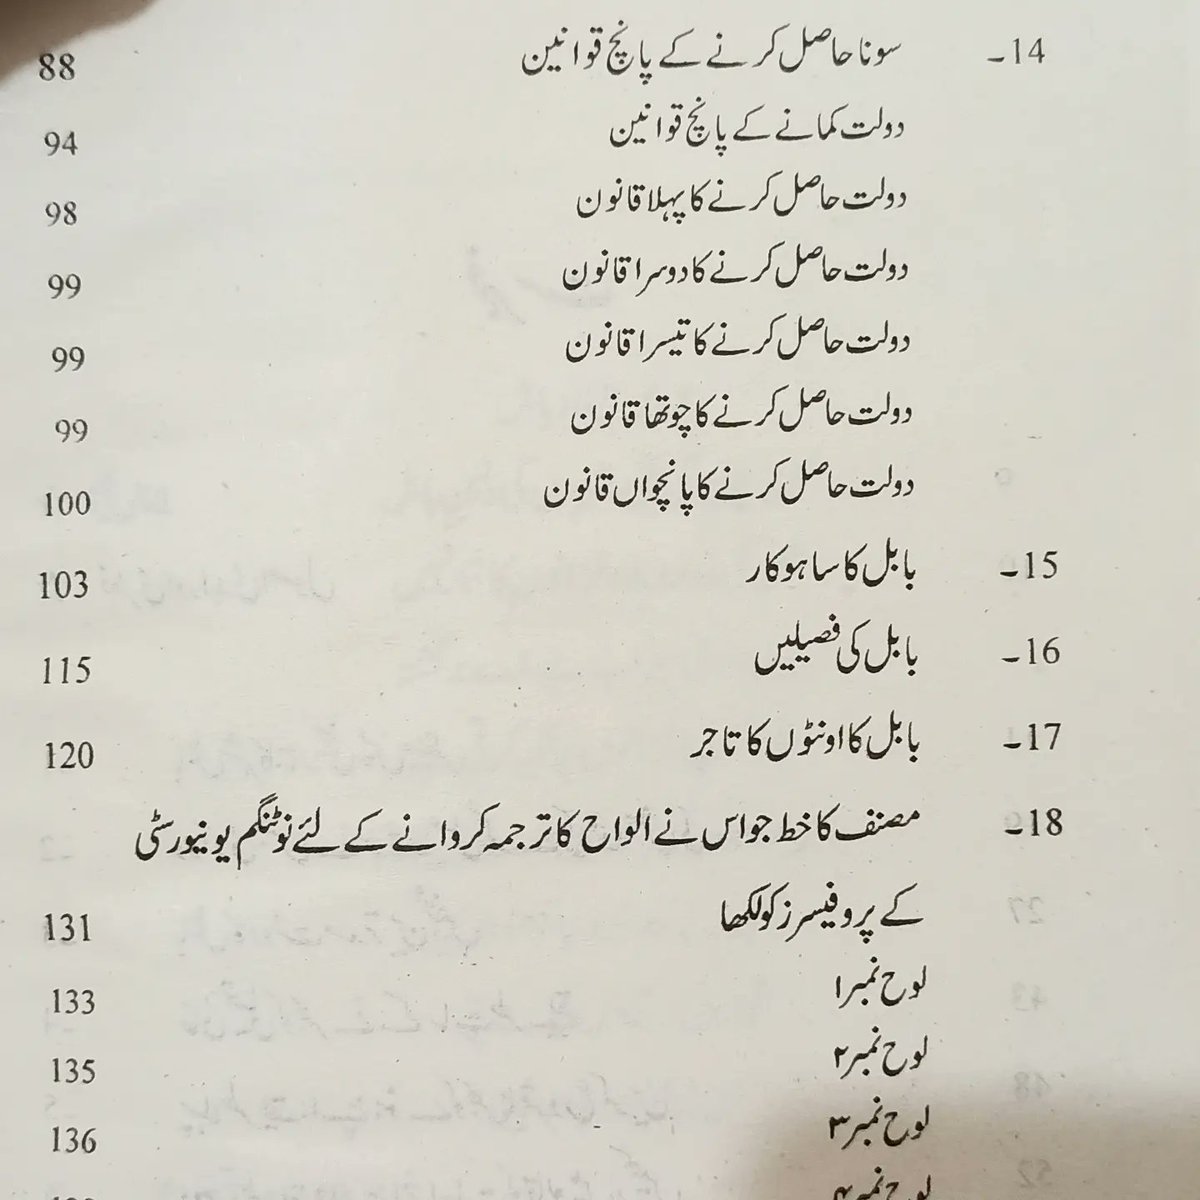 14۔ سونا حاصل کرنے کے پانچ قوانین 88
دولت کمانے کے پانچ قوانین 94
دولت حاصل کرنے کا پہلا قانون 98
دولت حاصل کرنے کا دوسرا قانون 99
دولت حاصل کرنے کا تیسرا قانون 99
دولت حاصل کرنے کا چوتھا قانون 99
دولت حاصل کرنے کا پانچواں قانون 100
15۔ بابل کا ساہوکار 103
16۔ بابل کی فصیلیں 115
17۔ بابل کا اونٹوں کا تاجر 120
18۔ مصنف کا خط جو اس نے الواح کا ترجمہ کروانے کے لئے نوٹنگم یونیورسٹی
کے پروفیسرز کو لکھا 131
لوح نمبر ۱ 133
لوح نمبر ۲ 135
لوح نمبر ۳ 136
لوح نمبر ۴